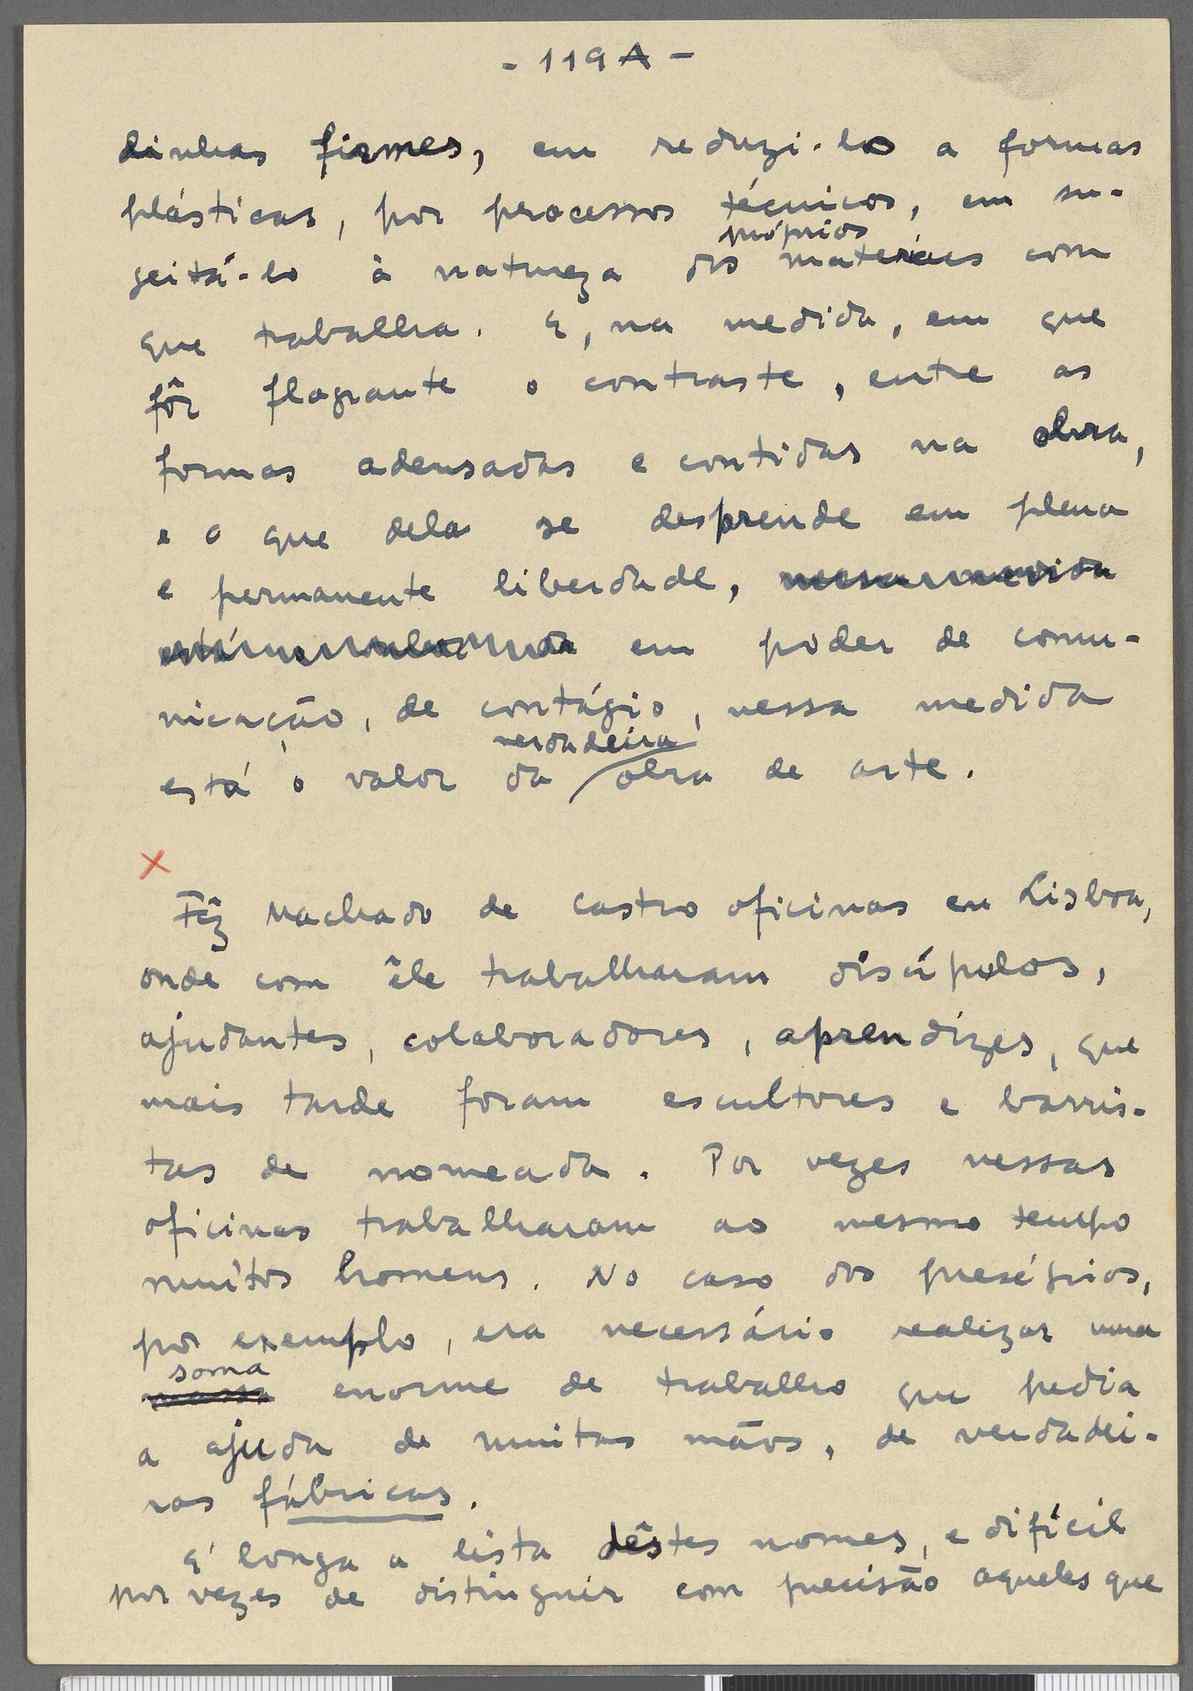 - 119 A -
linhas firmes, em reduzi-lo a formas
plásticas, por processos técnicos, em su-
próprios
geitá-lo à natureza dos materiais com
que trabalha. E, na medida, em que
fôr flagrante o contraste, entre as
formas adensadas e contidas na obra,
e o que dela se desprende em plena
e permanente liberdade, nessa medida
em poder de comu-
nicação, de contágio, nessa medida
verdadeira
está o valor da obra de arte.
x
Fêz Machado de Castro oficinas em Lisboa,
onde com êle trabalharam discípulos,
ajudantes, colaboradores, aprendizes, que
mais tarde foram escultores e barris-
tas de nomeada. Por vezes nessas
oficinas trabalharam ao mesmo tempo
muitos homens. No caso dos presépios,
por exemplo, era necessário realizar uma
soma
massa enorme de trabalho que pedia
a ajuda de muitas mãos, de verdadei-
ras fábricas.
E' longa a lista dêstes nomes, e difícil
por vezes de distinguir com precisão aqueles que